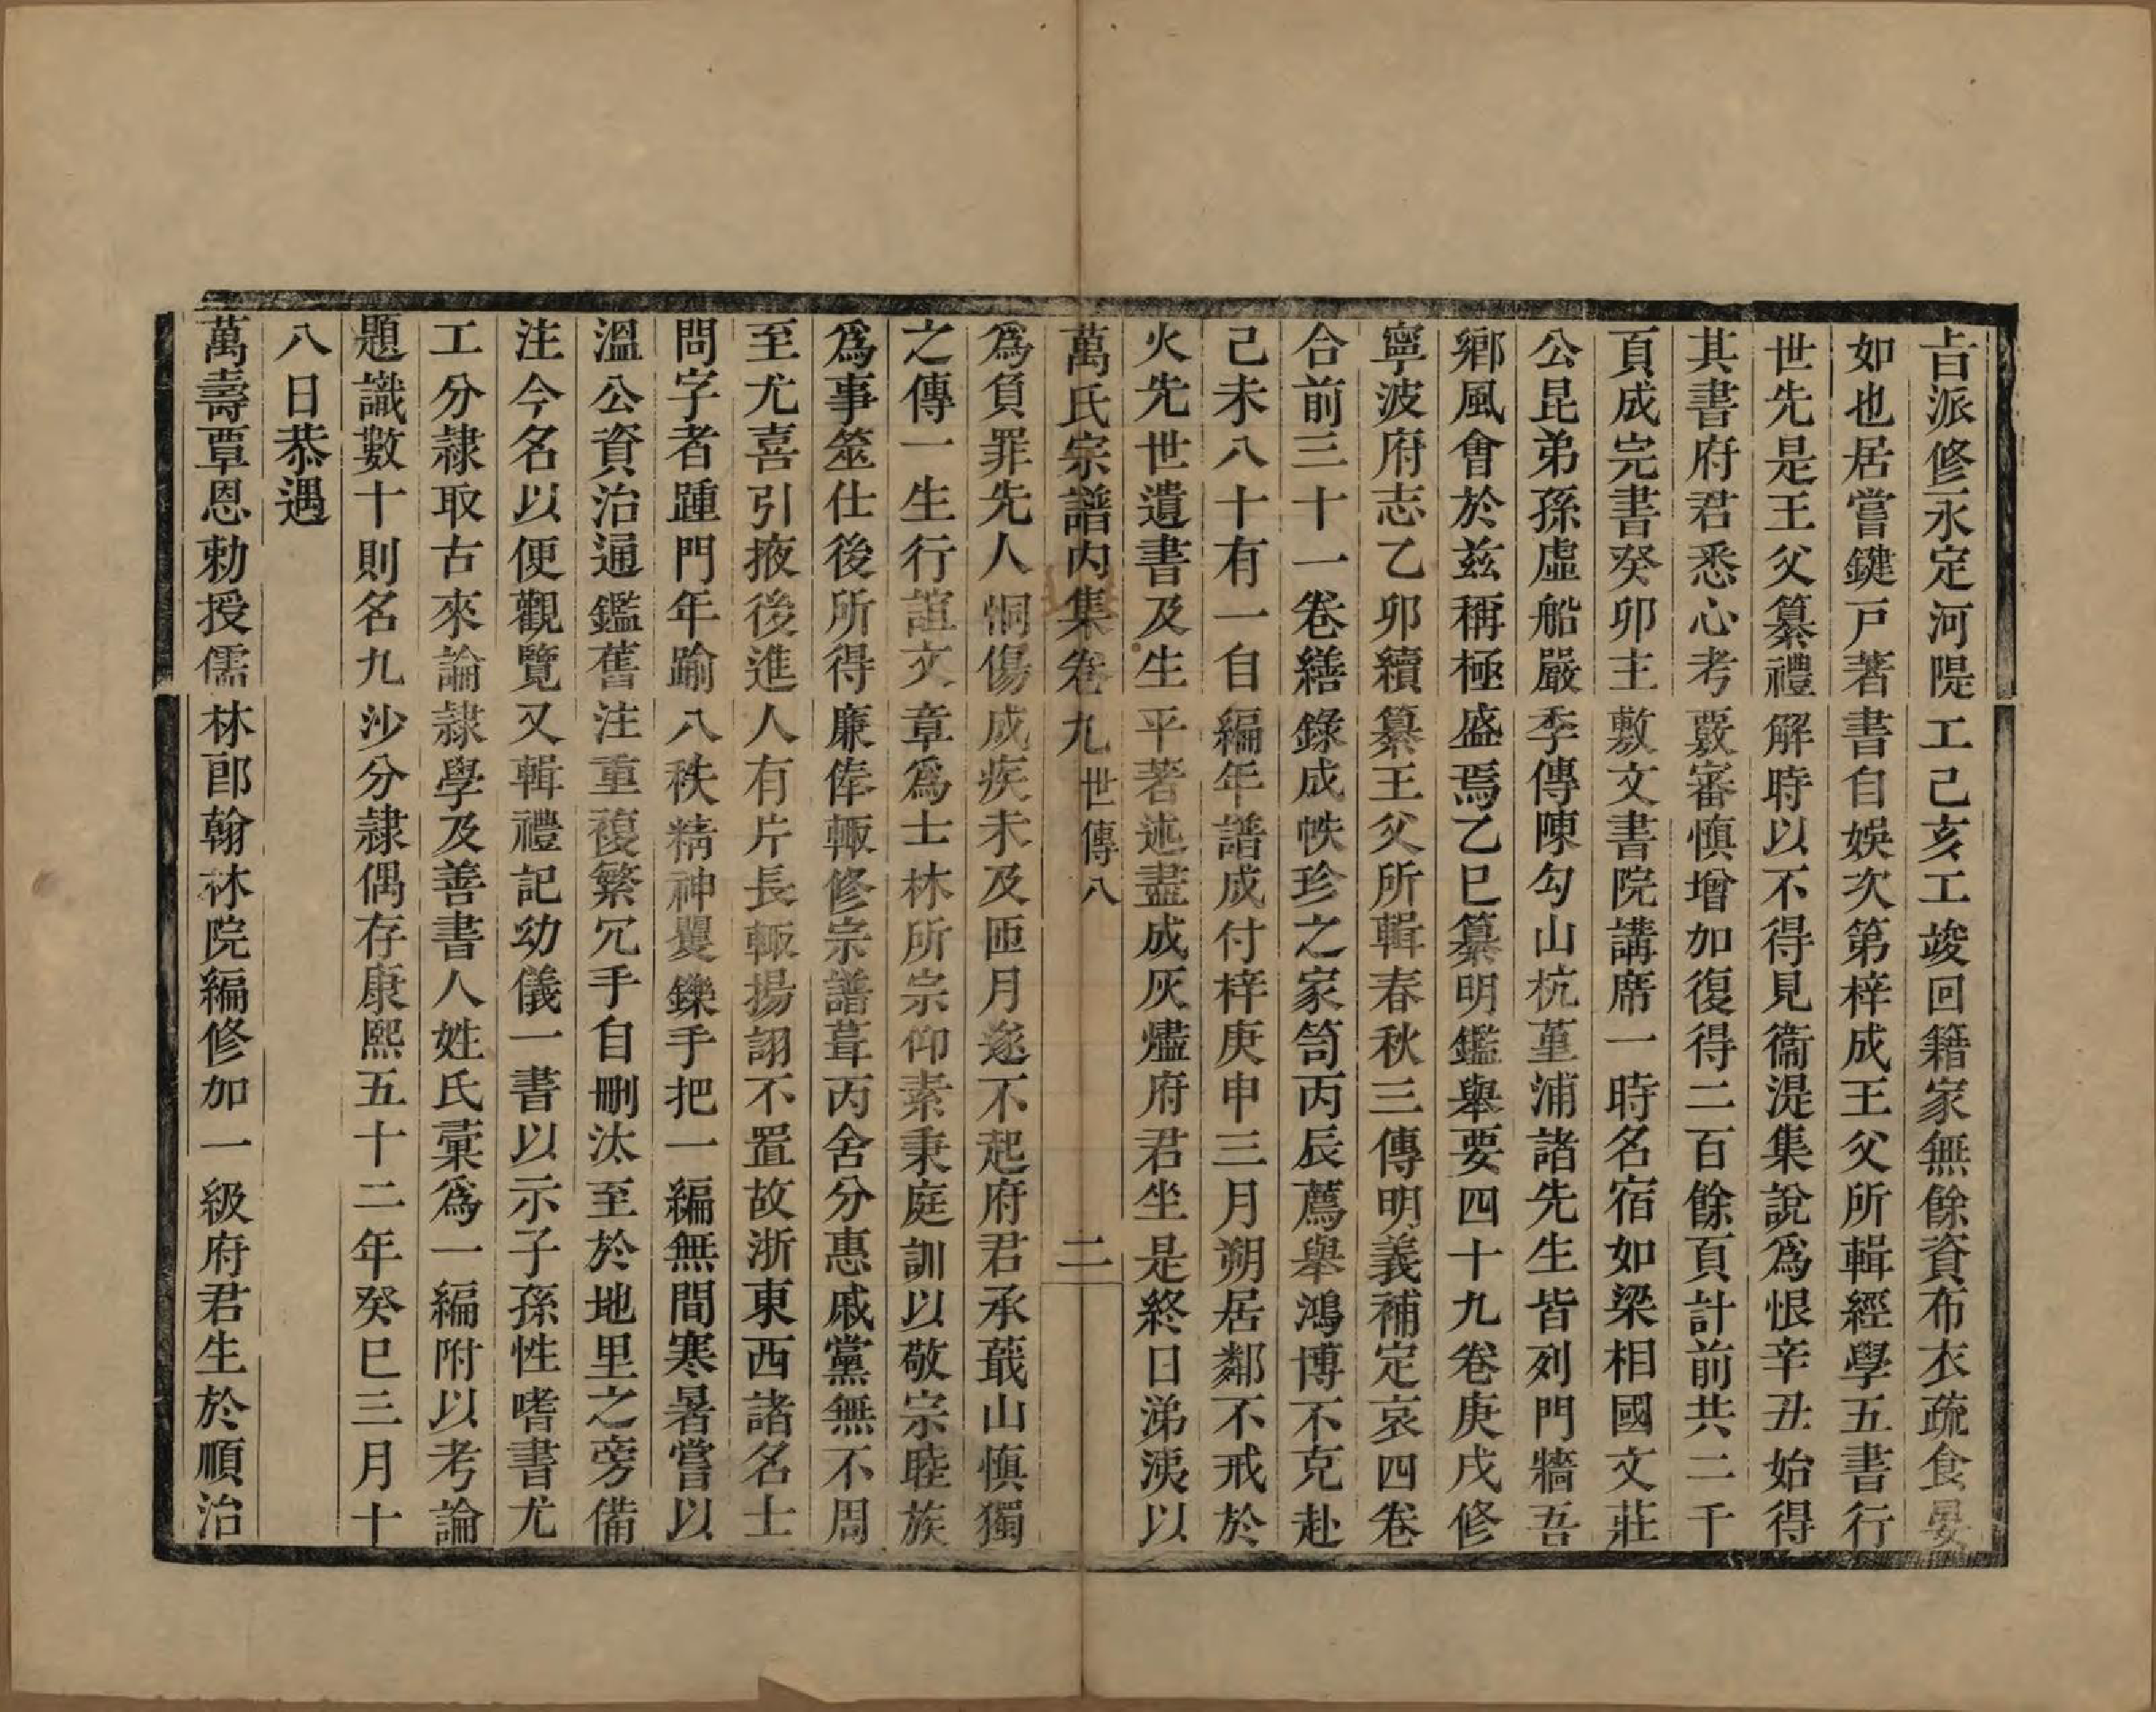 旨派修永定河隄工己亥工竣回籍家無餘資布衣疏食晏
如也居嘗鍵戸著書自娛次第梓成王父所輯經學五書行
世先是王父纂禮解時以不得見衞湜集說爲恨辛丑始得
其書府君悉心考覈審慎增加復得二百餘頁計前共二千
頁成完書癸卯主敷文書院講席一時名宿如梁相國文莊
公昆弟孫虛船嚴季傳陳勾山杭菫浦諸先生皆列門牆吾
鄉風會於兹稱極盛焉乙巳纂明鑑舉要四十九卷庚戌修
寧波府志乙卯續纂王父所輯春秋三傳明義補定哀四卷
合前三十一卷繕錄成帙珍之家笥丙辰薦舉鴻博不克赴
己未八十有一自編年譜成付梓庚申三月朔居鄰不戒於
火先世遺書及生平著述盡成灰燼府君坐是終日涕洟以
萬氏宗譜內集卷九 世傳八 二
爲負罪先人恫傷成疾未及匝月遂不起府君承蕺山慎獨
之傳一生行誼文章爲士林所宗仰素秉庭訓以敬宗睦族
爲事筮仕後所得廉俸輒修宗譜葺丙舍分惠戚黨無不周
至尤喜引掖後進人有片長輒揚詡不置故浙東西諸名士
問字者踵門年踰八秩精神矍鑠手把一編無間寒暑嘗以
溫公資治通鑑舊注重複繁冗手自刪汰至於地里之旁備
注今名以便觀覽又輯禮記幼儀一書以示子孫性嗜書尤
工分隷取古來論隷學及善書人姓氏彙爲一編附以考論
題識數十則名九沙分隷偶存康熙五十二年癸巳三月十
八日恭遇
萬壽覃恩勅授儒林郎翰林院編修加一級府君生於順治